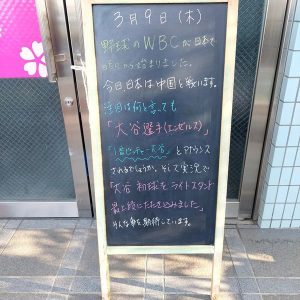 3月9日(木)
野球のWBCが日本で
始まりました。
今日、日本は中国と戦います。
注目は何と言っても
「大谷選手(エンゼルス)」
「1番ピッチャー大谷」とアナウンス
されるでしょうか。そして実況で
「大谷 初球をライトスタンド
最上段にたたき込みました」
そんな事を期待しています。